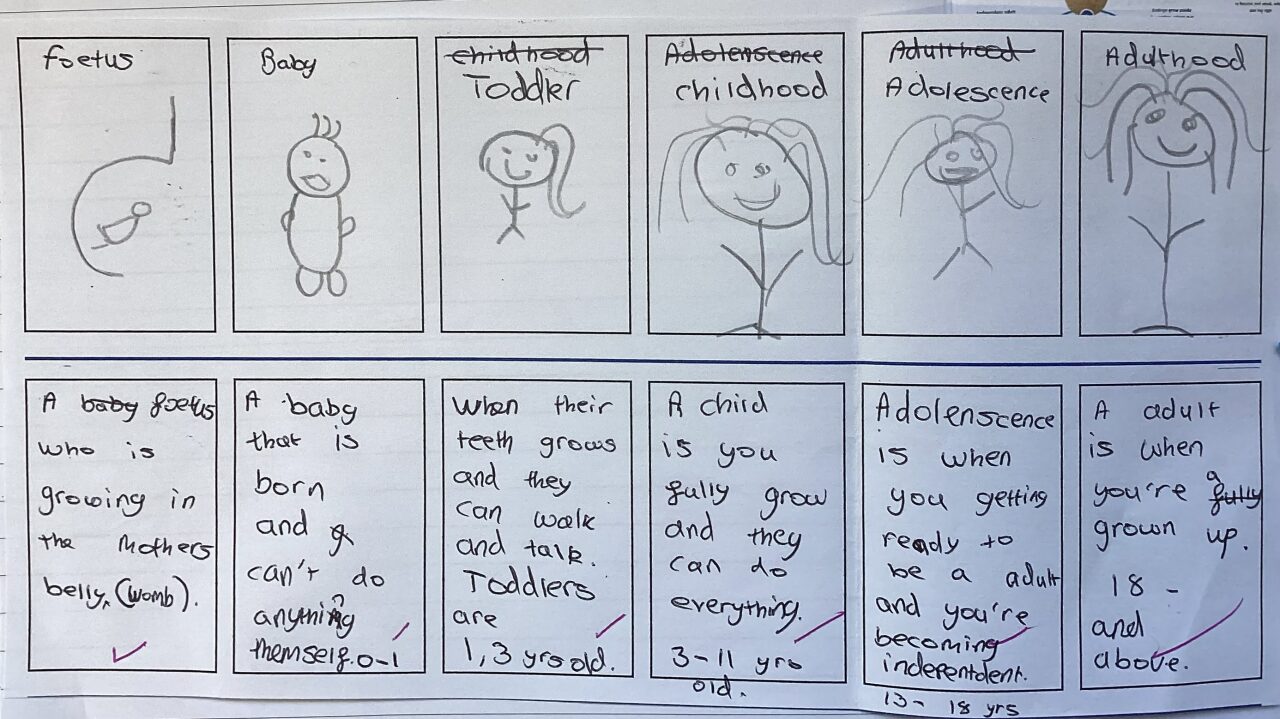 foetus
Baby
childhood
Toddler
Adolenscence
childhood
Adulthood
Adolescence
Adulthood
A baby foetus
who is
growing in
the Mothers
belly, (womb).
A baby
that is
born
and
can't do
anything
themself. 0-1
When their
teeth grows
and they
can walk
and talk.
Toddlers
are
1,3 yrs old.
A child
is you
fully grow
and they
can do
everything.
3-11 yrs
old.
Adolenscence
is when
you getting
ready to
be a adult
and you're
becoming
indepentdent.
13- 18 yrs
A adult
is when
you're a fully
grown up.
18 -
and
above.